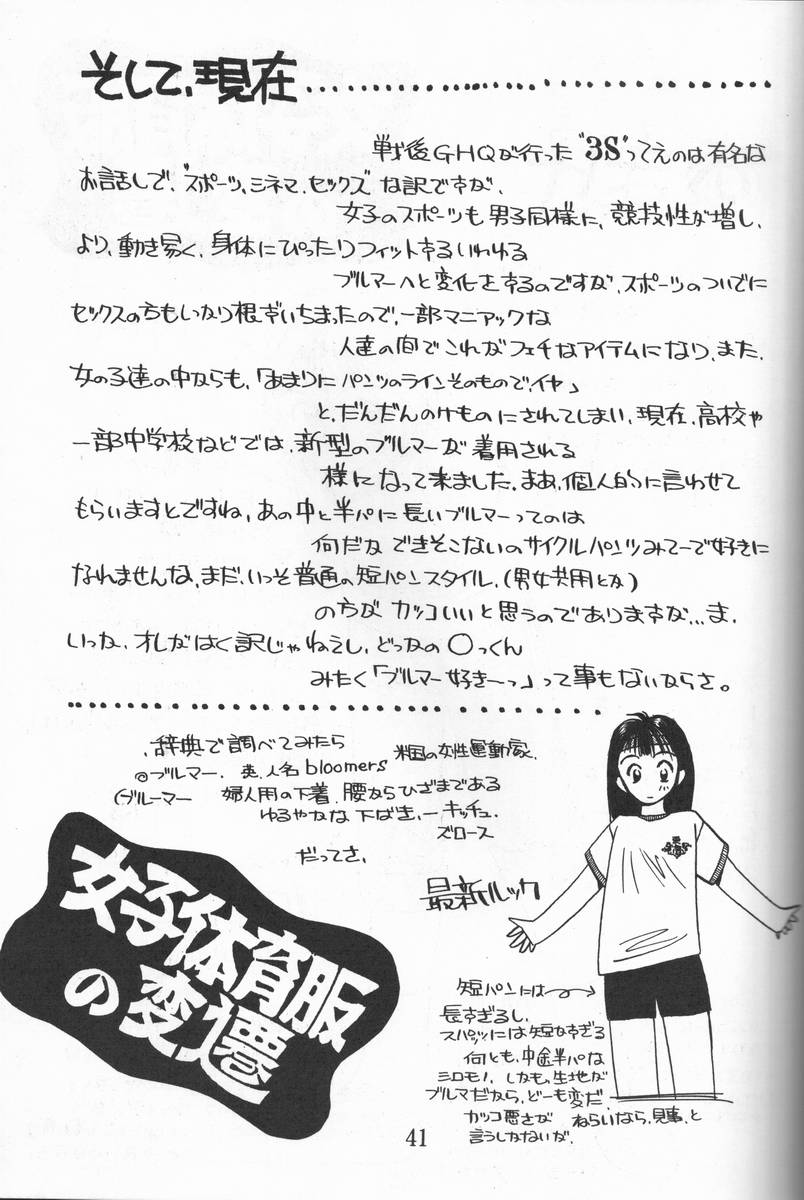 そして、現在………………………………
戦後GHQが行った"3S"ってえのは有名な
お話しで、"スポーツ、シネマ、セックス"な訳ですが、
女子のスポーツも男子同様に、競技性が増し、
より、動き易く、身体にぴったりフィットするいわゆる
ブルマーへと変化をするのですが、スポーツのついでに
セックスの方もしっかり根ずいちまったので、一部マニアックな
人達の間でこれがフェチなアイテムになり、また、
女の子達の中からも、「あまりにパンツのラインそのものでイヤ」
と、だんだんのけものにされてしまい、現在、高校や
一部中学校などでは、新型のブルマーが着用される
様になって来ました。まあ、個人的に言わせて
もらいますとですね、あの中と半パに長いブルマーってのは
何だかできそこないのサイクルパンツみてーで好きに
なれませんな、まだ、いっそ普通の短パンスタイル、(男女共用とか)
の方がカッコいいと思うのでありますが…ま、
いっか、オレがはく訳じゃねえし、どっかの〇っくん
みたく「ブルマー好き〜っ」って事もないからさ。
辞典で調べてみたら
◎ブルマー、英、人名bloomers 米国の女性運動家、
(ブルーマー 婦人用の下着、腰からひざまである
ゆるやかな下ばき、―キッチュ、
ズロース
だってさ、
女子体育服
の変遷
最新ルック
短パンには
長すぎるし、
スパッツには短かすぎる
何とも、中途半パな
シロモノ、しかも、生地が
ブルマだから、どーも変だ、
カッコ悪さが ねらいなら、見事、と
言うしかないが、
41